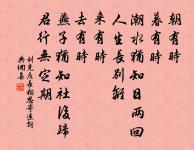 朝有時
暮有時
潮水猶知日兩回
人生長別離
來有時
去有時
燕子猶知社後歸
君行無定期
劉克莊長相思寄遠詞